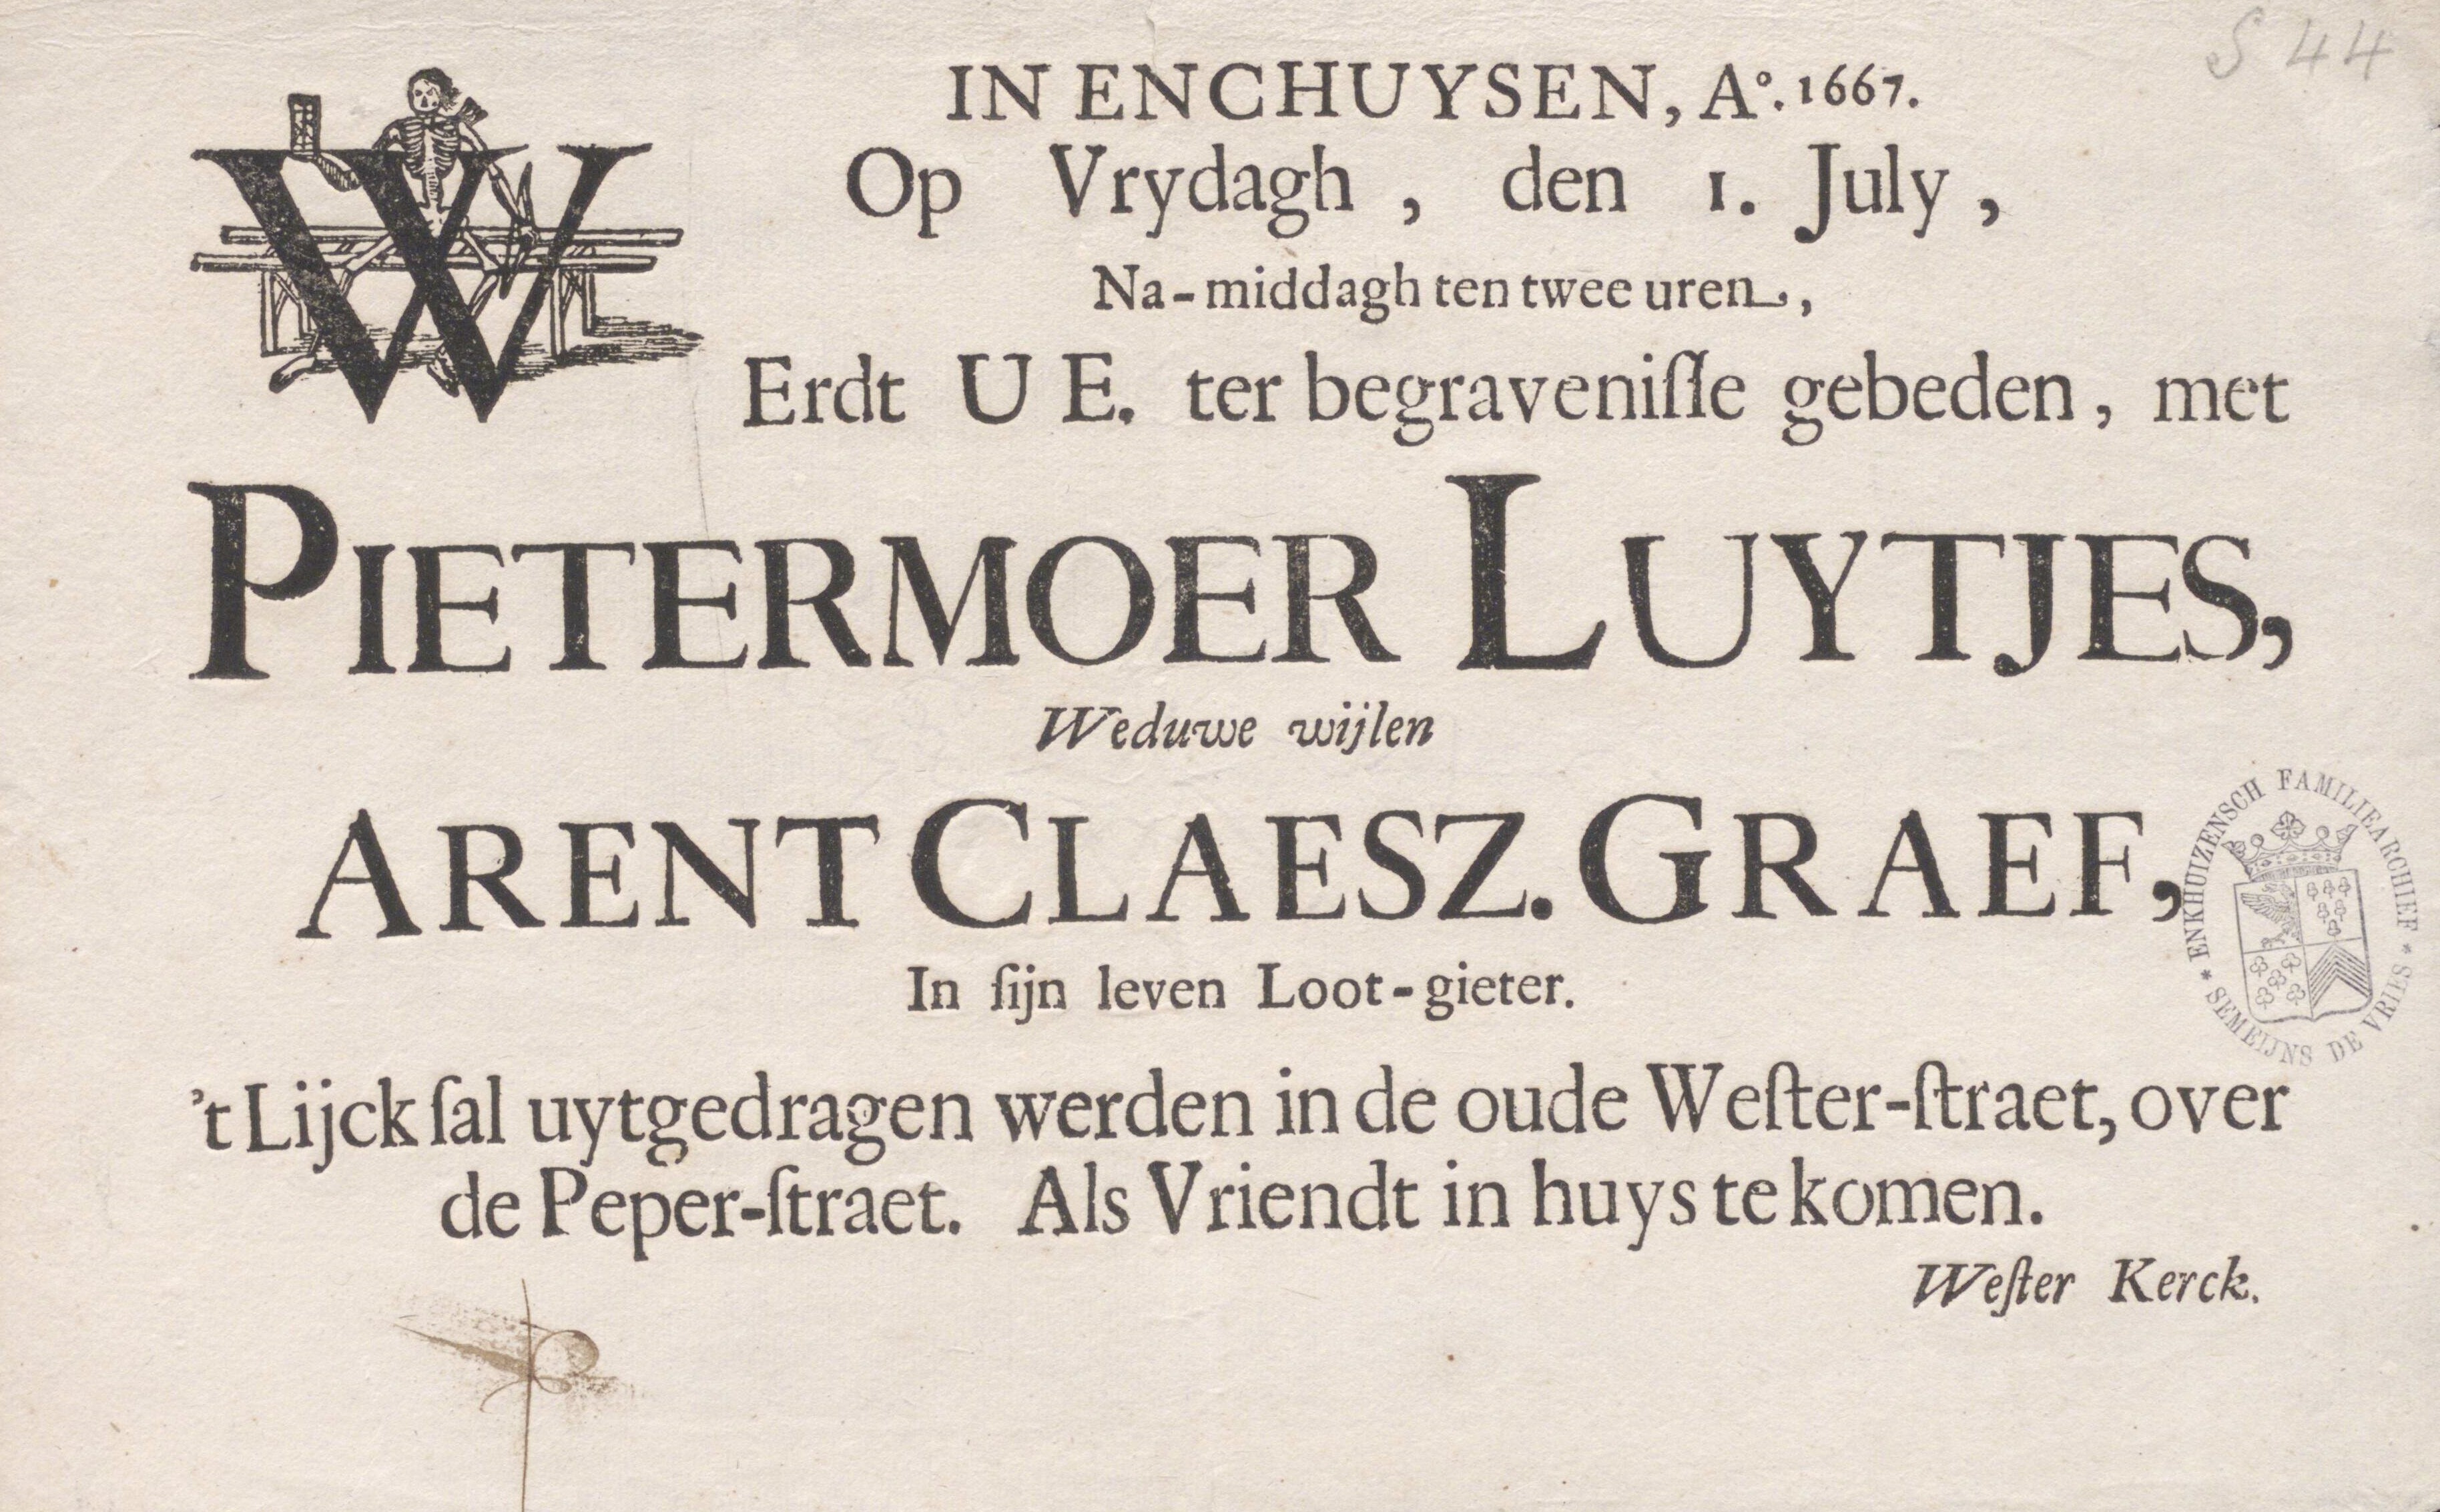 S 44
IN ENCHUYSEN, Aº. 1667.
Op Vrydagh, den 1. July,
Na-middagh ten twee uren,
WErdt U E. ter begraveniſſe gebeden, met
PIETERMOER LUYTJES,
Weduwe wijlen
ARENT CLAESZ. GRAEF,
In ſijn leven Loot-gieter.
't Lijck ſal uytgedragen werden in de oude Weſter-ſtraet, over
de Peper-ſtraet. Als Vriendt in huys te komen.
Weſter Kerck.
* ENKHUIZENSCH FAMILIEARCHIEF *
SEMEIJNS DE VRIES